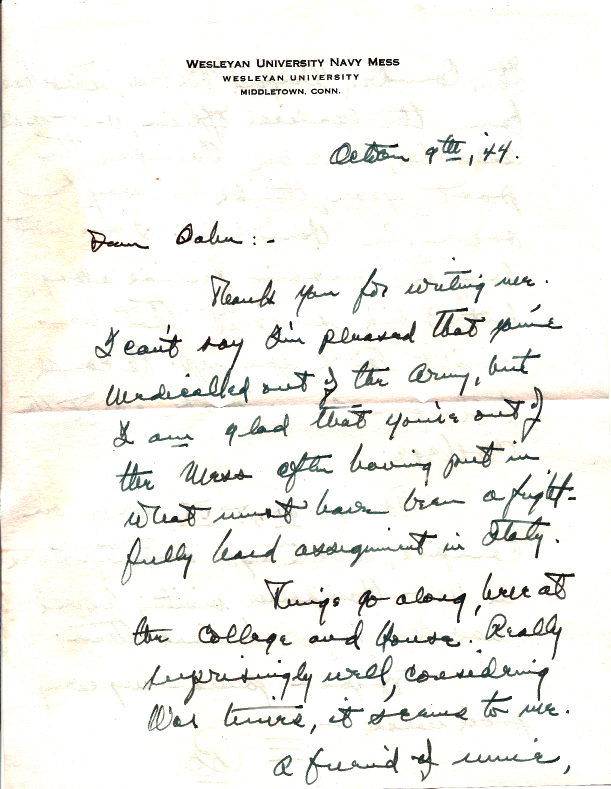 WESLEYAN UNIVERSITY NAVY MESS
WESLEYAN UNIVERSITY
MIDDLETOWN, CONN.
October 9th, '44.
Dear :-
Thank you for writing me.
I can't say I'm pleased that you're
medicalled out of the Army, but
I am glad that you're out of
the mess after having put in
what must have been a fright-
fully hard assignment in Italy.
Things go along, here at
the College and House. Really
surprisingly well, considering
War times, it seems to me.
A friend of mine,